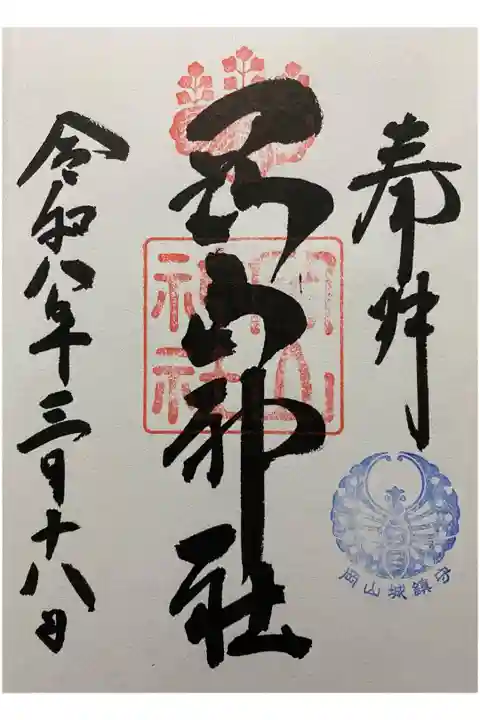 奉拝
岡山神社
岡山神社
岡山城鎮守
令和八年三月十八日